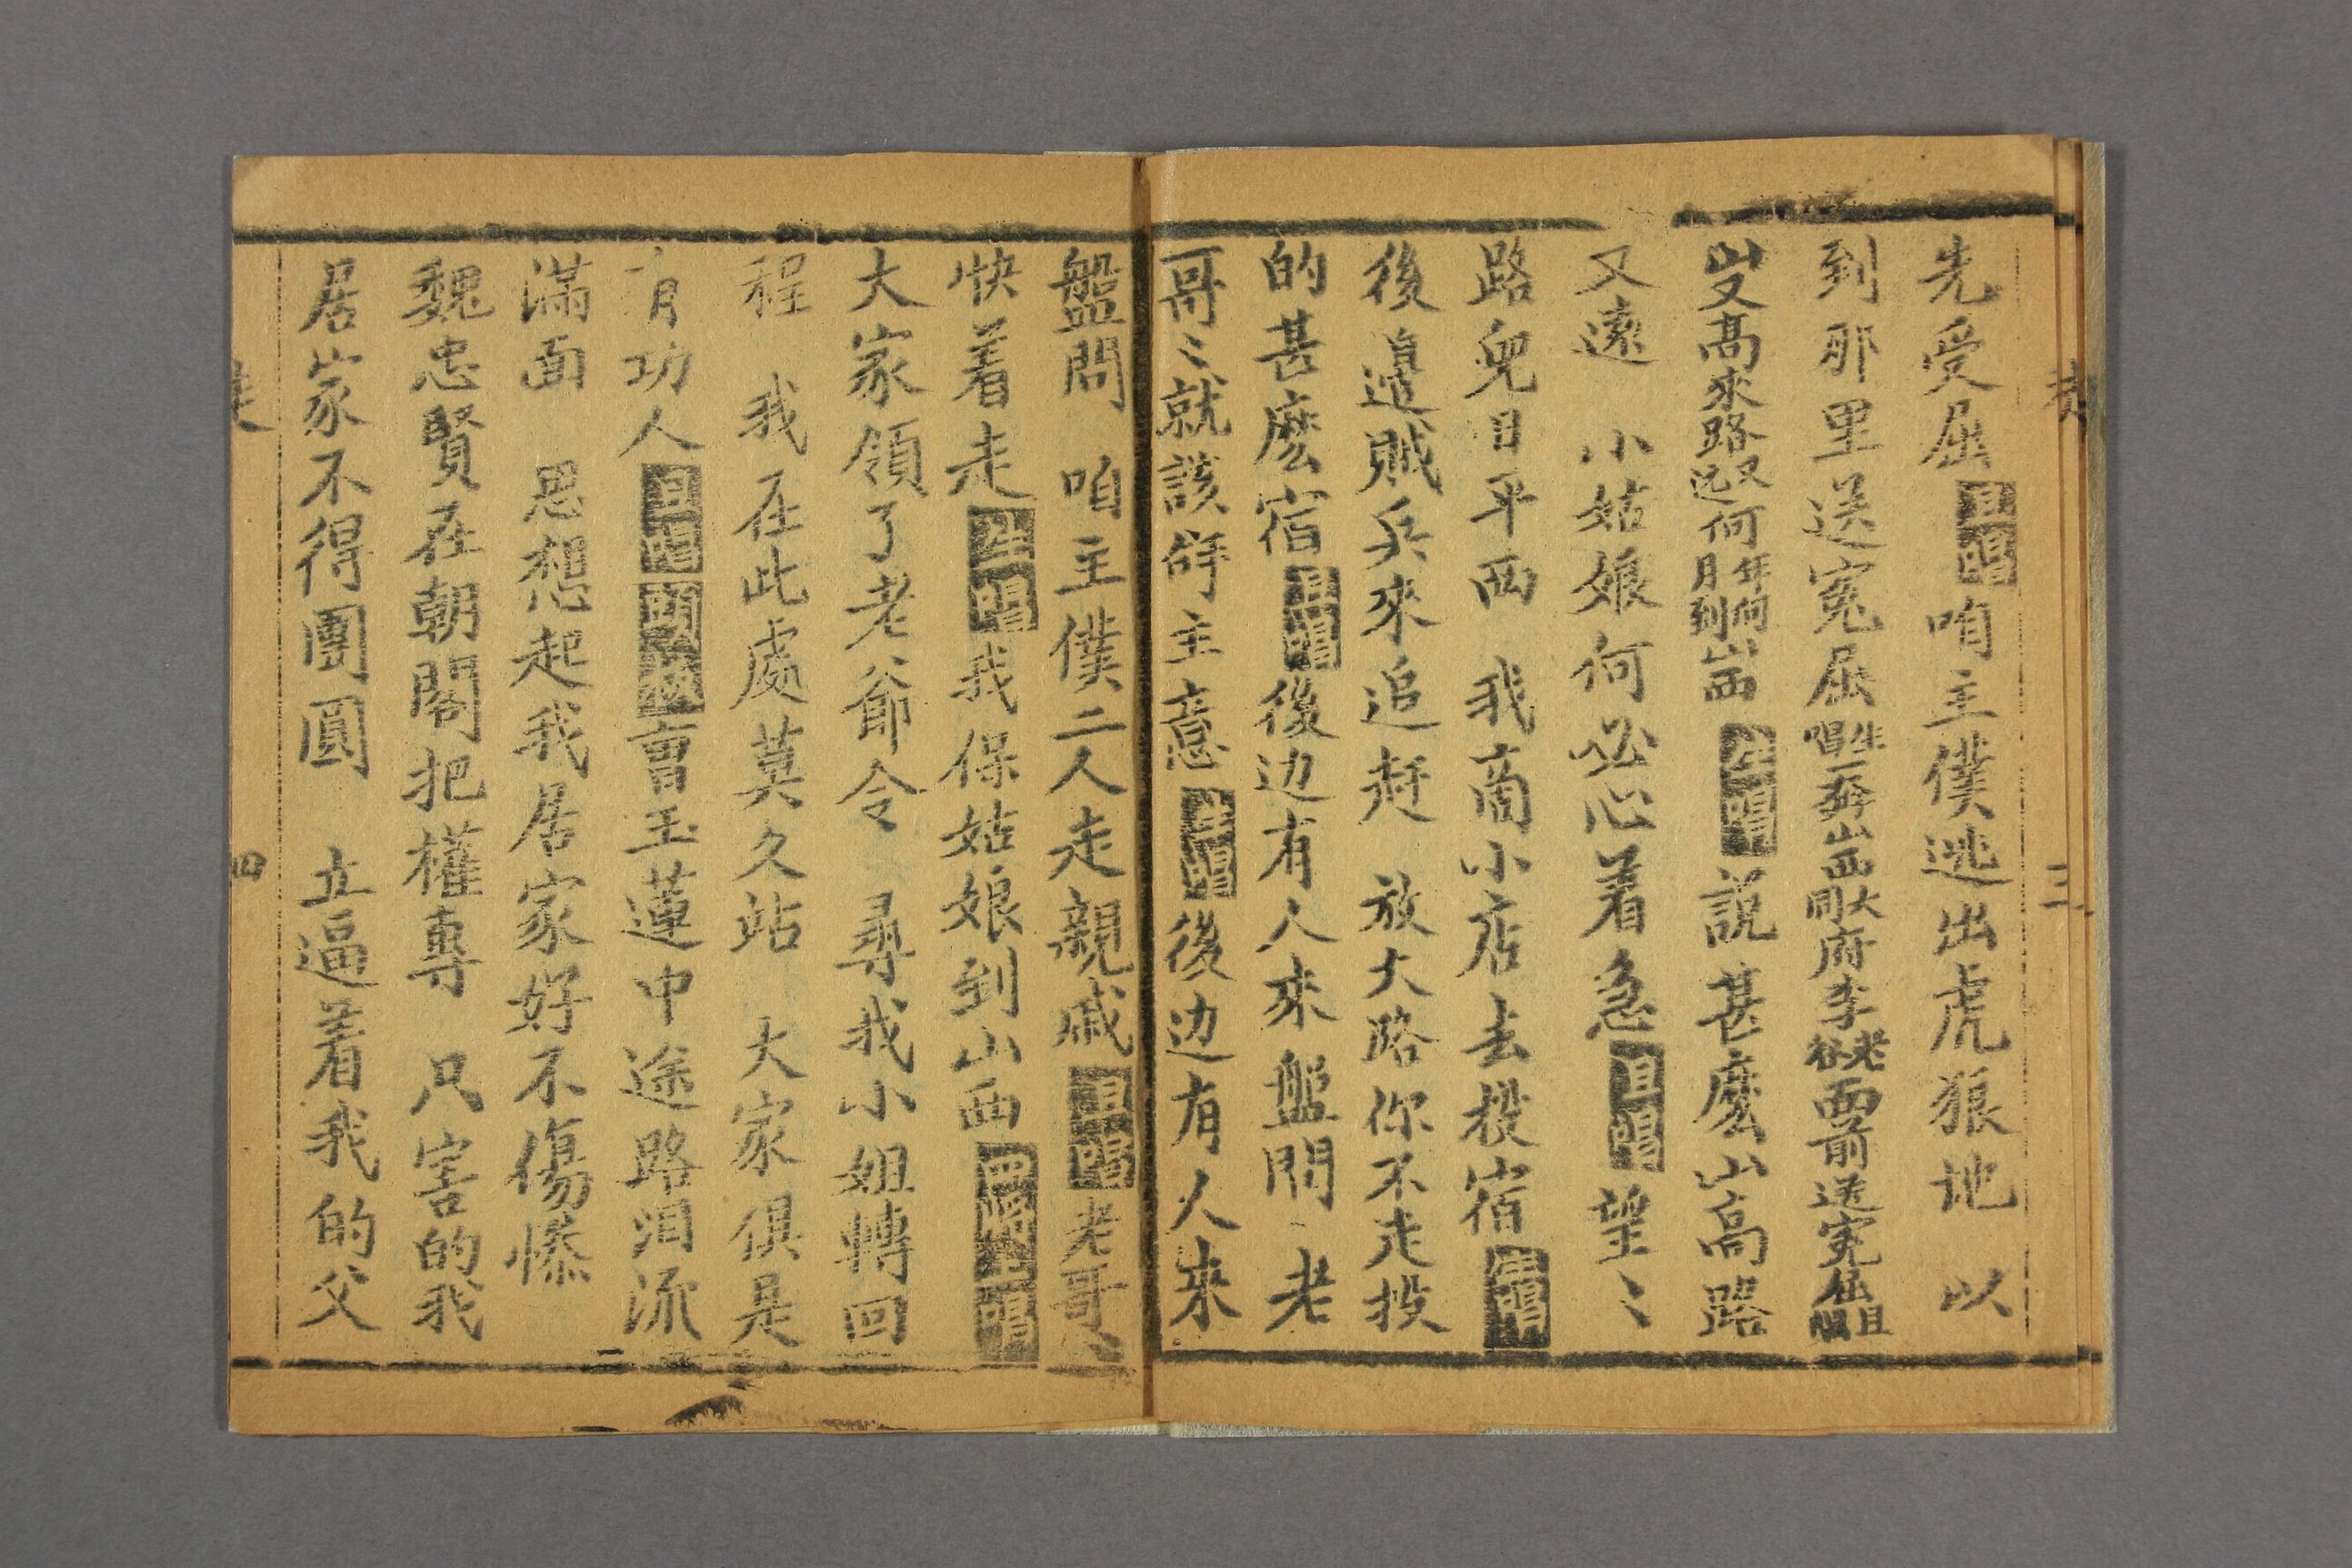 先受屈旦唱咱主僕逃出虎狼地 以
到那里送寃屈生唱一奔山西大同府李老爷面前送寃屈旦唱
山又高來路又远何年何月到山西 生唱 說甚麽山高路
又遠 小姑娘何必心着急旦唱望〻
路兒日平西 我商小店去投宿生唱
後邉賊兵來追赶 放大路你不走投
的甚麽宿旦唱後边有人來盤問 老
哥〻就該舒主意生唱後边有人來
盤問 咱主僕二人走親戚旦唱老哥〻
快着走生唱我保姑娘到山西四將上唱
大家領了老爺令 尋我小姐轉回
程 我在此處莫久站 大家俱是
有功人旦唱曹玉蓮中途路泪流
滿面 思想起我居家好不傷慘
魏忠賢在朝閣把權專 只害的我
居家不得團圓 立逼着我的父
三
四